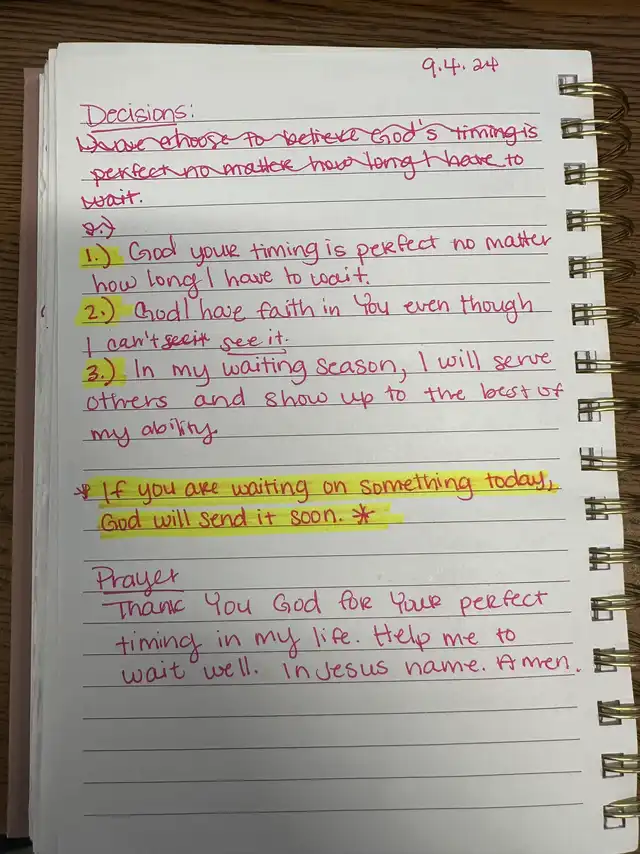 9.4.24
Decisions:
I have choose to believe God's timing is
perfect no matter how long I have to
wait.
2.)
1.) God your timing is perfect no matter
how long I have to wait.
2.) God I have faith in You even though
I can't see it see it.
3.) In my waiting season, I will serve
others and show up to the best of
my ability.
* If you are waiting on something today,
God will send it soon. *
Prayer
Thank You God for Your perfect
timing in my life. Help me to
wait well. In Jesus name. Amen.